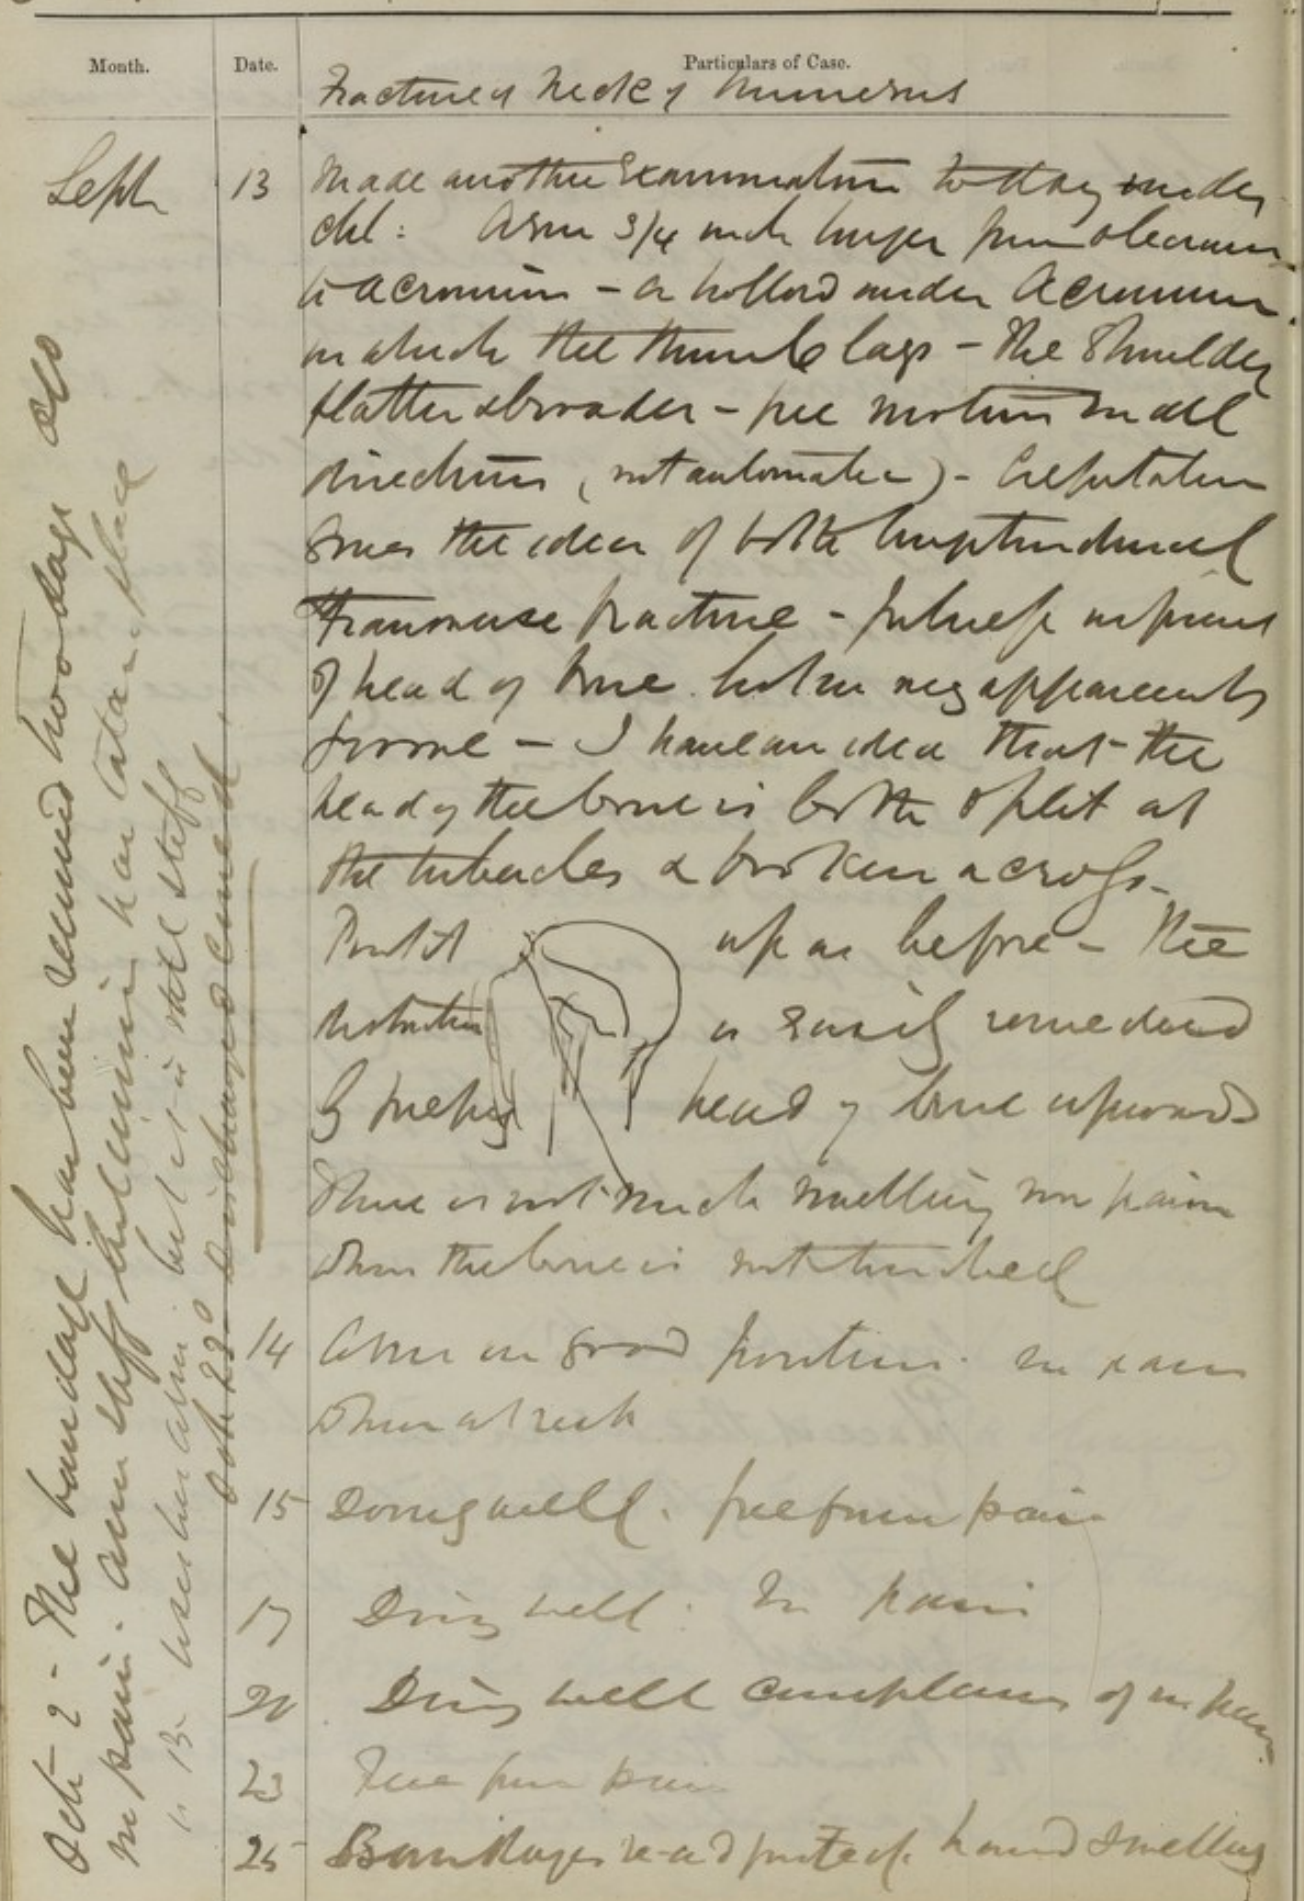 Month. Date. Particulars of Case.
Fracture of Neck of Humerus
Sept 13 Made another Examination to day under
chl: Arm 3/4 inch longer from olecranon
to acromion - a hollow under Acromion
in which the thumb lays - The Shoulder
flatter & broader - free motion in all
directions (not automatic) - Crepitation
Gives the idea of both longitudinal
transverse fracture -
of head of bone apparently
- I have an idea that the
head of the bone is both split at
the tubercles & broken across -
Put it up as before - The
is easily remedied
by head of bone upwards
There is not much swelling nor pain
when the bone is not touched
14 Arm in good position. no pain
when at rest
15 Doing well. free from pain
17 Doing well. No pain
20 Doing well complains of no pain
23 Free from pain
25 Bandages hand swelling
Oct 2 - The bandage has been removed two days ago
no pain. Arm stiff has taken place
" 13 - uses her arm but it is still stiff
Oct 22d discharged cured.